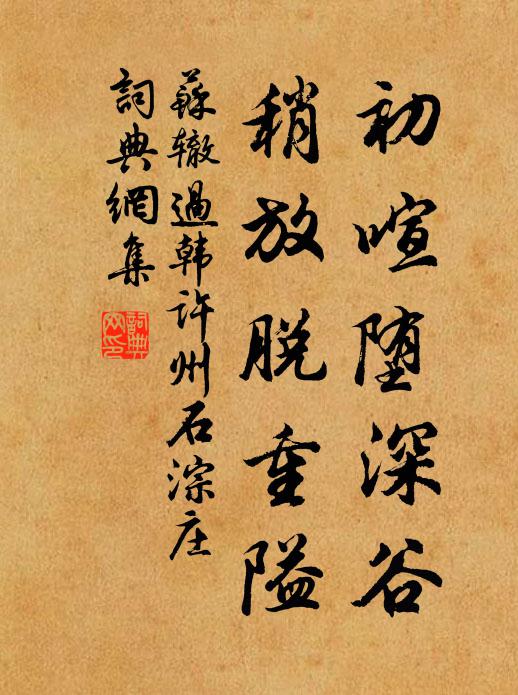 初喧堕深谷
稍放脱重隘
蘇辙過韩许州石淙庄
詞典網集
詞典网印